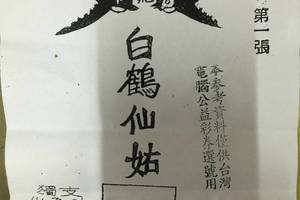 第一張
本參考資料僅供台灣
電腦公益彩券選號用
白鶴仙姑
獨支